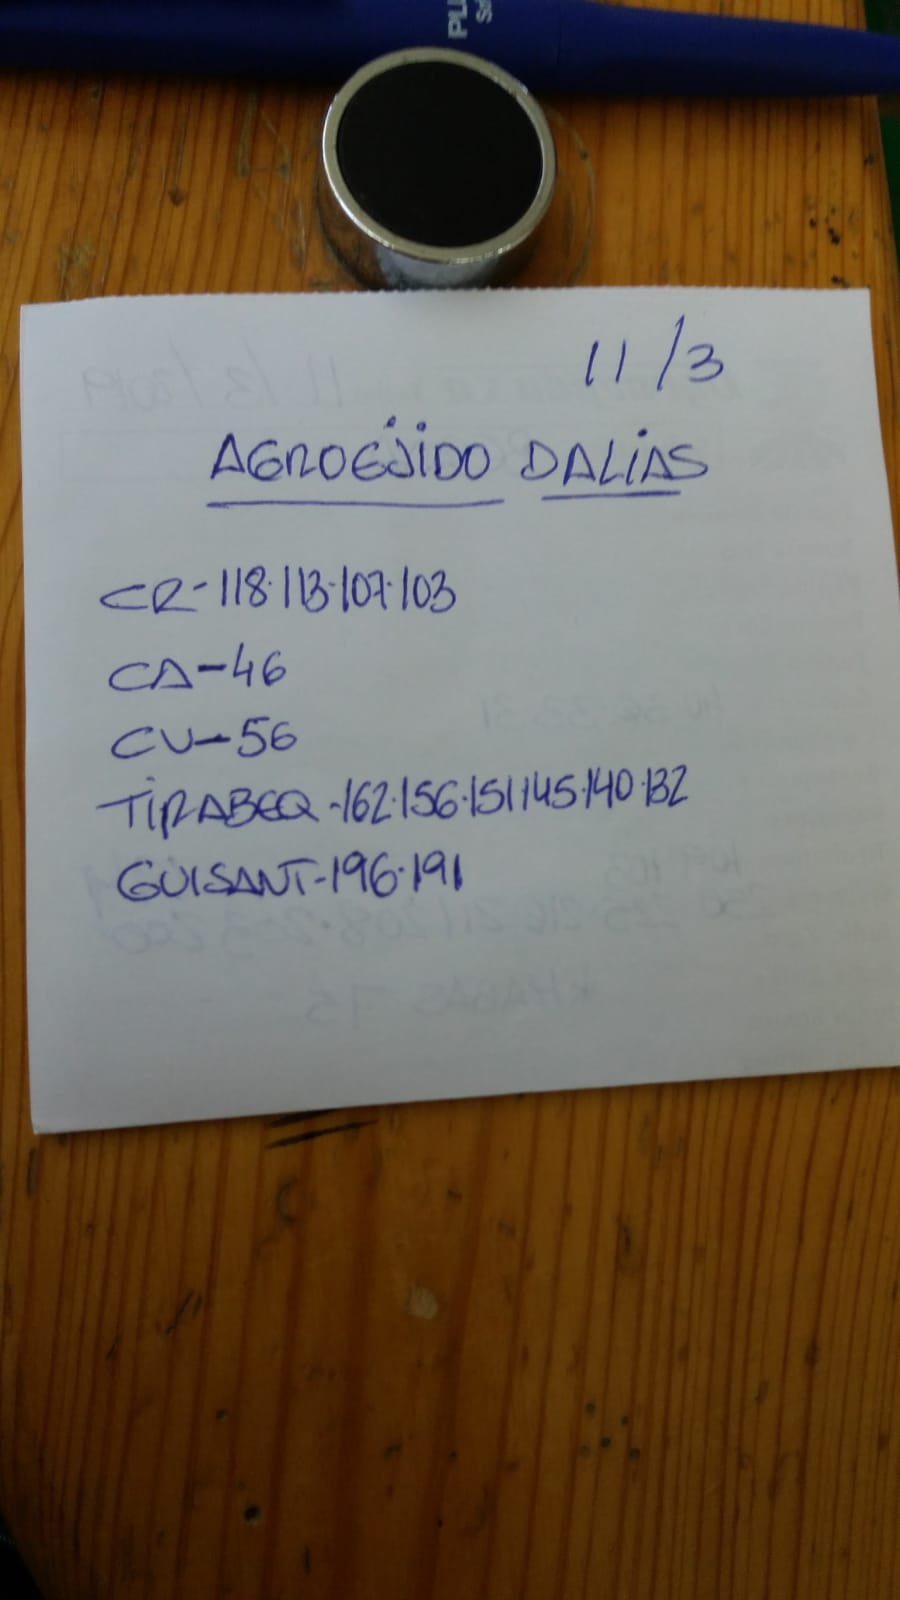 PLU
11/3
AGROEJIDO DALIAS
CR-118·113·107·103
CA-46
CU-56
TIRABEQ-162·156·151·145·140·132
GUISANT-196·191